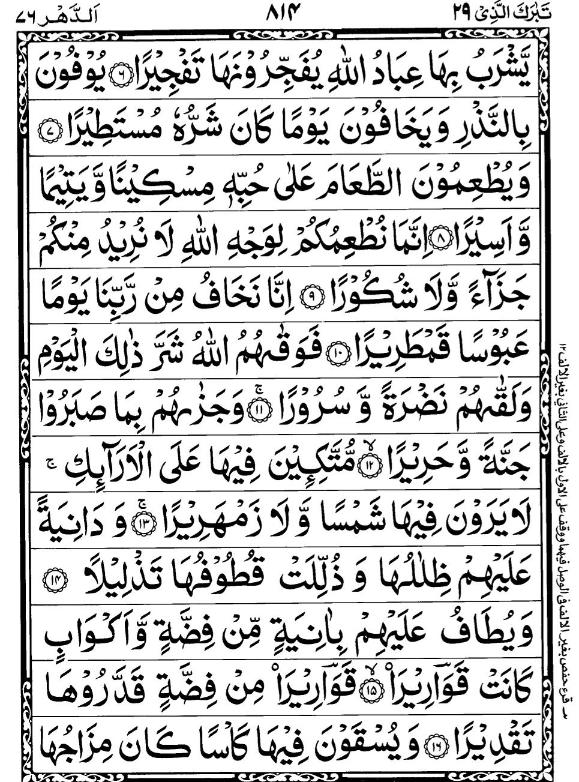 تَبٰرَكَ الَّذِیْ ٢٩
٨١٤
اَلدَّهْر ٧٦
يَّشْرَبُ بِهَا عِبَادُ اللّٰهِ يُفَجِّرُوْنَهَا تَفْجِيْرًا ۝٦ يُوْفُوْنَ
بِالنَّذْرِ وَيَخَافُوْنَ يَوْمًا كَانَ شَرُّهٗ مُسْتَطِيْرًا ۝٧
وَيُطْعِمُوْنَ الطَّعَامَ عَلٰى حُبِّهٖ مِسْكِيْنًا وَّيَتِيْمًا
وَّاَسِيْرًا ۝٨ اِنَّمَا نُطْعِمُكُمْ لِوَجْهِ اللّٰهِ لَا نُرِيْدُ مِنْكُمْ
جَزَآءً وَّلَا شُكُوْرًا ۝٩ اِنَّا نَخَافُ مِنْ رَّبِّنَا يَوْمًا
عَبُوْسًا قَمْطَرِيْرًا ۝١٠ فَوَقٰىهُمُ اللّٰهُ شَرَّ ذٰلِكَ الْيَوْمِ
وَلَقّٰىهُمْ نَضْرَةً وَّ سُرُوْرًا ۝١١ۚ وَجَزٰىهُمْ بِمَا صَبَرُوْا
جَنَّةً وَّحَرِيْرًا ۝١٢ۙ مُّتَّكِـِٕيْنَ فِيْهَا عَلَى الْاَرَآئِكِ ۚ
لَا يَرَوْنَ فِيْهَا شَمْسًا وَّ لَا زَمْهَرِيْرًا ۝١٣ۚ وَ دَانِيَةً
عَلَيْهِمْ ظِلٰلُهَا وَ ذُلِّلَتْ قُطُوْفُهَا تَذْلِيْلًا ۝١٤
وَيُطَافُ عَلَيْهِمْ بِاٰنِيَةٍ مِّنْ فِضَّةٍ وَّاَكْوَابٍ
كَانَتْ قَوَارِيْرَا۠ ۝١٥ۙ قَوَارِيْرَا۠ مِنْ فِضَّةٍ قَدَّرُوْهَا
تَقْدِيْرًا ۝١٦ وَيُسْقَوْنَ فِيْهَا كَاْسًا كَانَ مِزَاجُهَا
قرء حفص بغير الالف فى الوصل فيهما ووقف على الاول بالالف وعلى الثانى بغير الالف ١٢